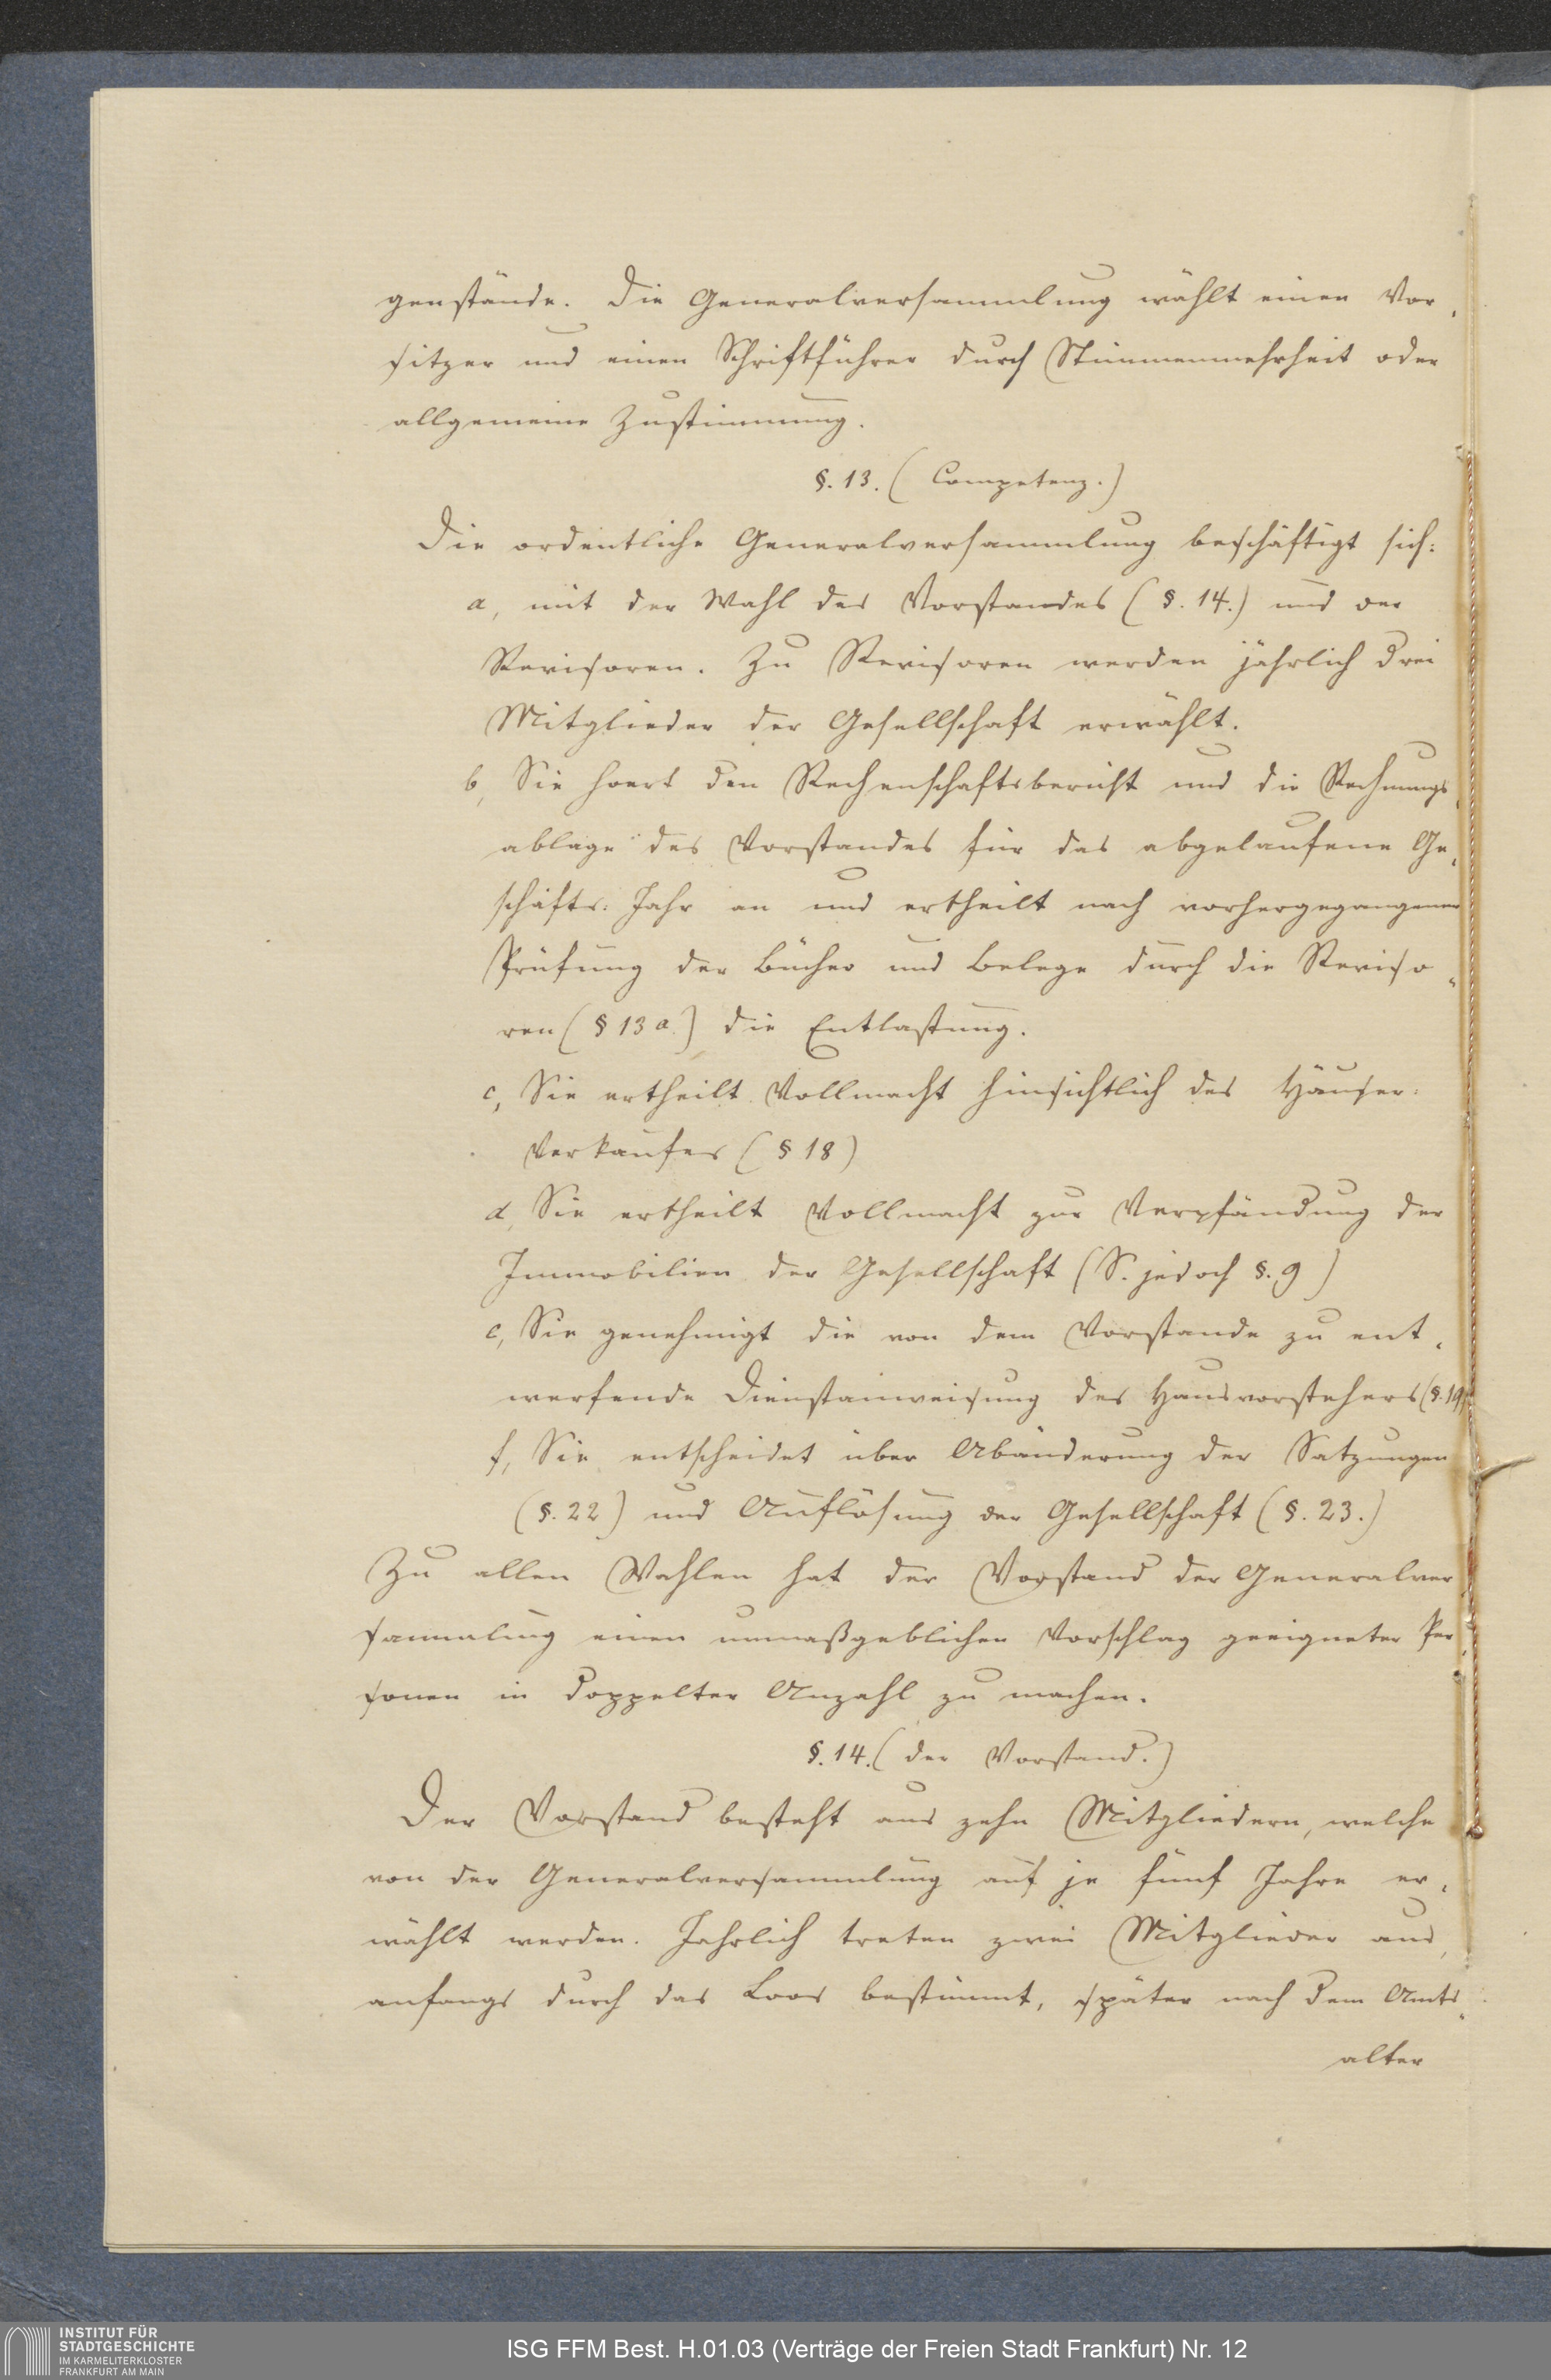 genstände. Die Generalversammlung wählt einen Vor,
sitzer und einen Schriftführer durch Stimmenmehrheit oder
allgemeine Zustimmung.
§. 13. (Competenz.)
Die ordentliche Generalversammlung beschäftigt sich:
a, mit der Wahl des Vorstandes (§. 14.) und der
Revisoren. Zu Revisoren werden jährlich drei
Mitglieder der Gesellschaft erwählt.
b, Sie hoert den Rechenschaftsbericht und die Rechnungs,
ablage des Vorstandes für das abgelaufene Ge,
schäfts: Jahr an und ertheilt nach vorhergegangener
Prüfung der Bücher und Belege durch die Reviso,
ren (§ 13 a.) die Entlastung.
c, Sie ertheilt Vollmacht hinsichtlich des Häuser:
Verkaufes (§ 18)
d, Sie ertheilt Vollmacht zur Verpfändung der
Immobilien der Gesellschaft (S. jedoch §. 9)
e, Sie genehmigt die von dem Vorstande zu ent,
werfende Dienstanweisung des Hausvorstehers (§. 19)
f, Sie entscheidet über Abänderung der Satzungen
(§. 22) und Auflösung der Gesellschaft (§. 23.)
Zu allen Wahlen hat der Vorstand der Generalver
sammlung einen unmaßgeblichen Vorschlag geeigneter Per,
sonen in doppelter Anzahl zu machen.
§. 14. (der Vorstand.)
Der Vorstand besteht aus zehn Mitgliedern, welche
von der Generalversammlung auf je fünf Jahre er,
wählt werden. Jahrlich treten zwei Mitglieder aus,
anfangs durch das Loos bestimmt, später nach dem Amts,
alter
INSTITUT FÜR
STADTGESCHICHTE
IM KARMELITERKLOSTER
FRANKFURT AM MAIN
ISG FFM Best. H.01.03 (Verträge der Freien Stadt Frankfurt) Nr. 12